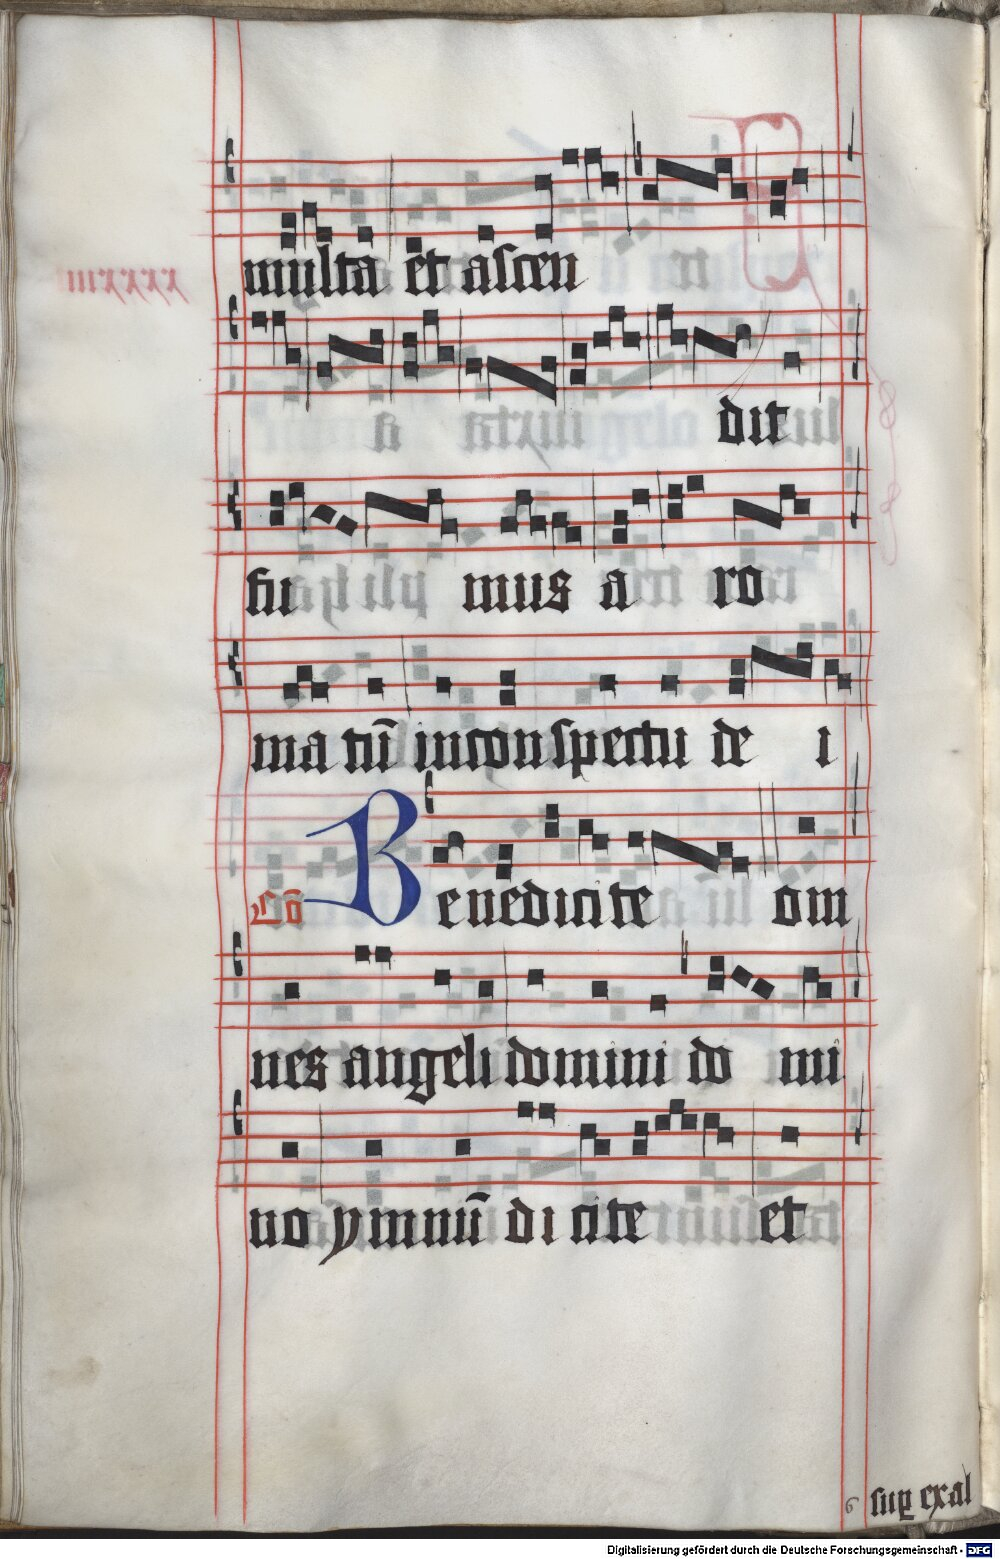 multa et ascen
dit
fu mus a ro
ma tū in conspectu de i
Cō Benedicite om
nes angeli domini do mi
no ymnū di cite et
6 sup exal
Digitalisierung gefördert durch die Deutsche Forschungsgemeinschaft - DFG